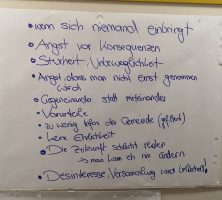 • wenn sich niemand einbringt
• Angst vor Konsequenzen
• Sturheit, Unbeweglichkeit
• Angst dass man nicht ernst genommen
wird
• Gegeneinander statt miteinander
• Vorurteile
• zu wenig Infos als Gemeinde
• keine Ehrlichkeit
• Die Zukunft schlecht reden
→ man kann eh nix ändern
• Desinteresse